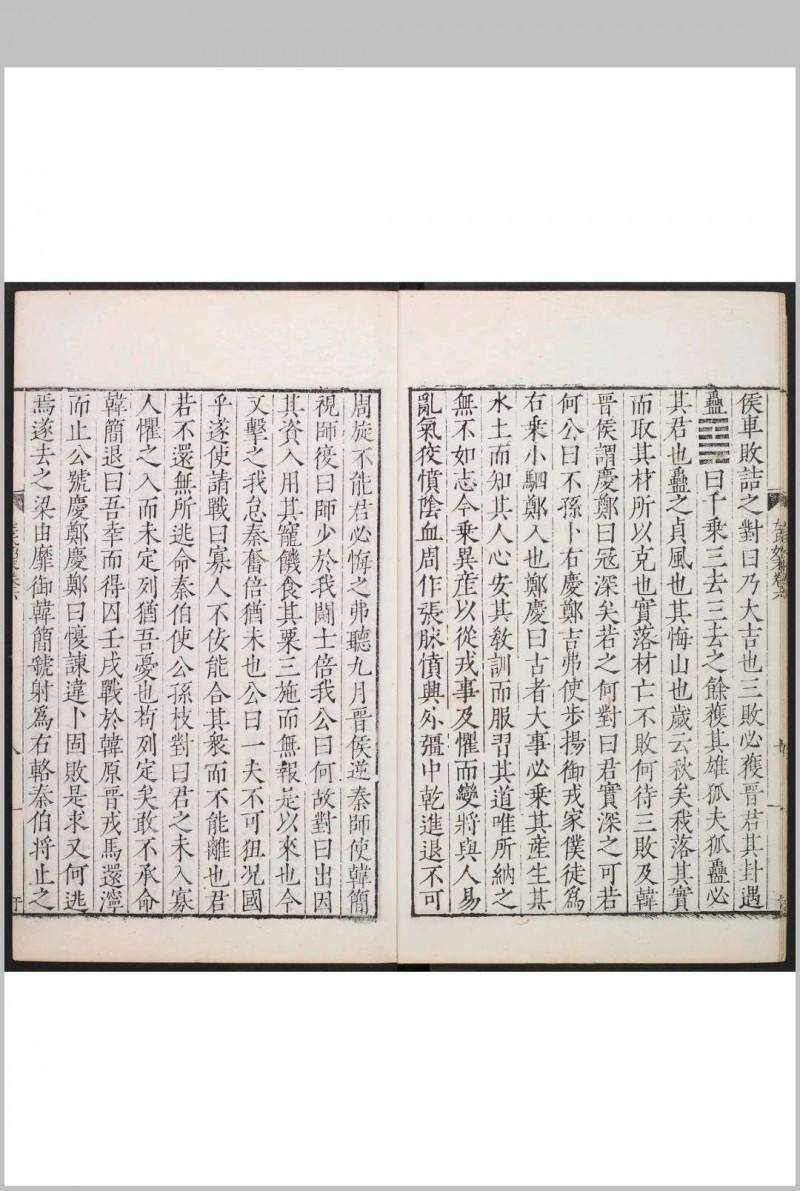 侯車敗詰之對曰乃大吉也三敗必獲晉君其卦遇
蠱䷑曰千乗三去三去之餘獲其雄狐夫狐蠱必
其君也蠱之貞風也其悔山也歲云秋矣我落其實
而取其材所以克也實落材亡不敗何待三敗及韓
晉侯謂慶鄭曰冦深矣若之何對曰君實深之可若
何公曰不孫卜右慶鄭吉弗使步揚御戎家僕徒爲
右乗小駟鄭入也鄭慶曰古者大事必乗其産生其
水土而知其人心安其敎訓而服習其道唯所納之
無不如志今乗異産以從戎事及懼而變將與人易
亂氣狡憤陰血周作張脉憤興外彊中乾進退不可
周旋不能君必悔之弗聽九月晉侯逆秦師使韓簡
視師復曰師少於我鬬士倍我公曰何故對曰出因
其資入用其寵饑食其粟三施而無報是以來也今
又擊之我怠秦奮倍猶未也公曰一夫不可狃况國
乎遂使請戰曰寡人不佞能合其衆而不能離也君
若不還無所逃命秦伯使公孫枝對曰君之未入寡
人懼之入而未定列猶吾憂也苟列定矣敢不承命
韓簡退曰吾幸而得囚壬戌戰於韓原晉戎馬還濘
而止公號慶鄭慶鄭曰愎諫違卜固敗是求又何逃
焉遂去之梁由靡御韓簡虢射爲右輅秦伯将止之